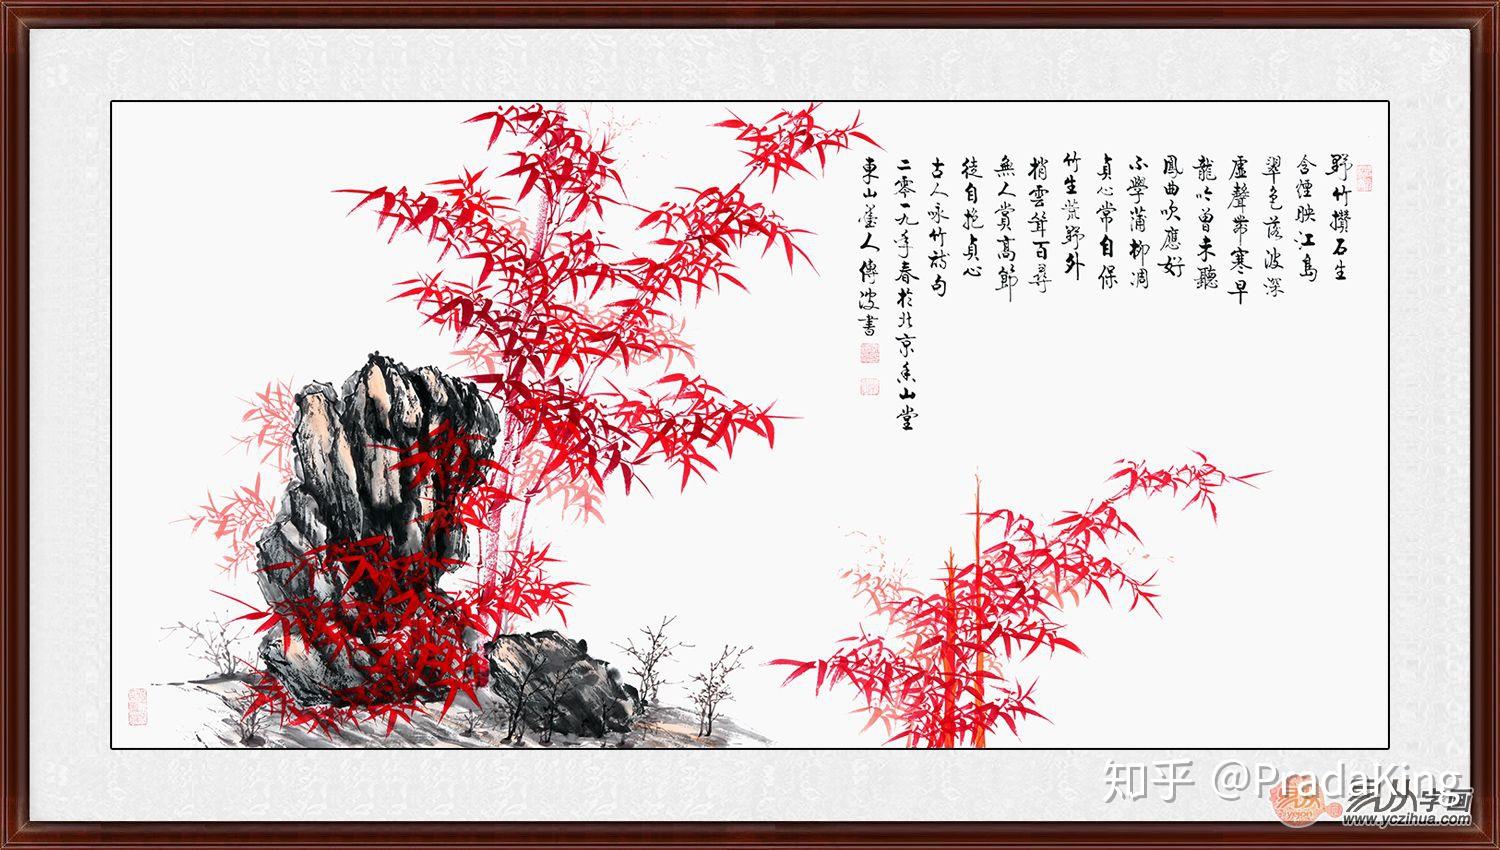 野竹攢石生
含煙映江島
翠色落波深
虛聲帶寒早
龍吟曾未聽
鳳曲吹應好
不學蒲柳凋
貞心常自保
竹生荒野外
梢雲聳百尋
無人賞高節
徒自抱貞心
古人咏竹詩句
二零一九年春於北京山堂
東山墨人傅波書
知乎 @PradaKing
易从字画
www.yczihua.com